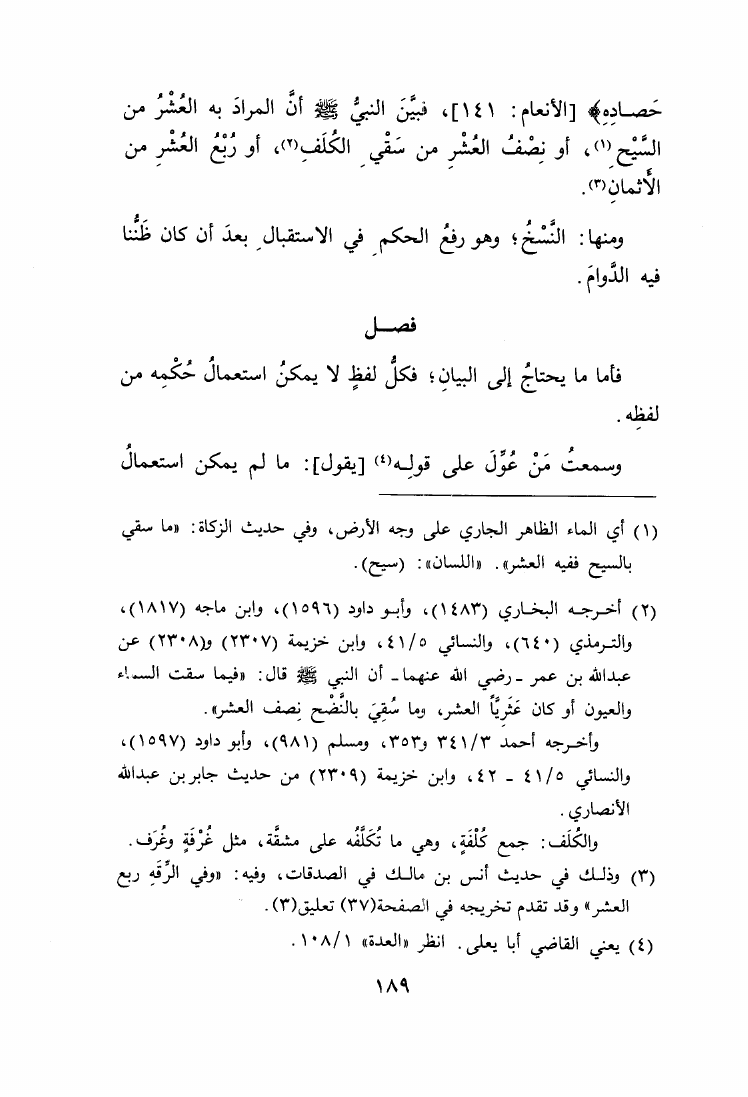 حَصـادِهِ﴾ [الأنعام: ١٤١]، فبيَّنَ النبيُّ ﷺ أنَّ المرادَ به العُشْرُ من
السَّيْحِ(١)، أو نِصْفُ العُشْرِ من سَقْيِ الكُلَفِ(٢)، أو رُبْعُ العُشْرِ من
الأَثمانِ(٣).
ومنها: النَّسْخُ؛ وهو رفعُ الحكمِ في الاستقبالِ بعدَ أن كان ظَنُّنا
فيه الدَّوامَ.
فصـل
فأما ما يحتاجُ إلى البيانِ؛ فكلُّ لفظٍ لا يمكنُ استعمالُ حُكْمِه من
لفظِه.
وسمعتُ مَنْ عُوِّلَ على قولِـه(٤) [يقول]: ما لم يمكن استعمالُ
(١) أي الماء الظاهر الجاري على وجه الأرض، وفي حديث الزكاة: «ما سقي
بالسيح ففيه العشر». «اللسان»: (سيح).
(٢) أخـرجـه البخـاري (١٤٨٣)، وأبـو داود (١٥٩٦)، وابن ماجه (١٨١٧)،
والتـرمذي (٦٤٠)، والنسائي ٤١/٥، وابن خزيمة (٢٣٠٧) و(٢٣٠٨) عن
عبدالله بن عمر ـ رضي الله عنهما ـ أن النبي ﷺ قال: «فيما سقت السماء
والعيون أو كان عَثَرِيَّاً العشر، وما سُقِيَ بالنَّضْح نصف العشر».
وأخـرجه أحمد ٣٤١/٣ و٣٥٣، ومسلم (٩٨١)، وأبو داود (١٥٩٧)،
والنسائي ٤١/٥ ـ ٤٢، وابن خزيمة (٢٣٠٩) من حديث جابر بن عبدالله
الأنصاري.
والكُلَف: جمع كُلْفَةٍ، وهي ما تُكَلَّفُه على مشقَّة، مثل غُرْفَةٍ وغُرَف.
(٣) وذلـك في حديث أنس بن مالـك في الصدقات، وفيه: «وفي الرِّقَةِ ربع
العشر» وقد تقدم تخريجه في الصفحة(٣٧) تعليق(٣).
(٤) يعني القاضي أبا يعلى. انظر «العدة» ١٠٨/١.
١٨٩